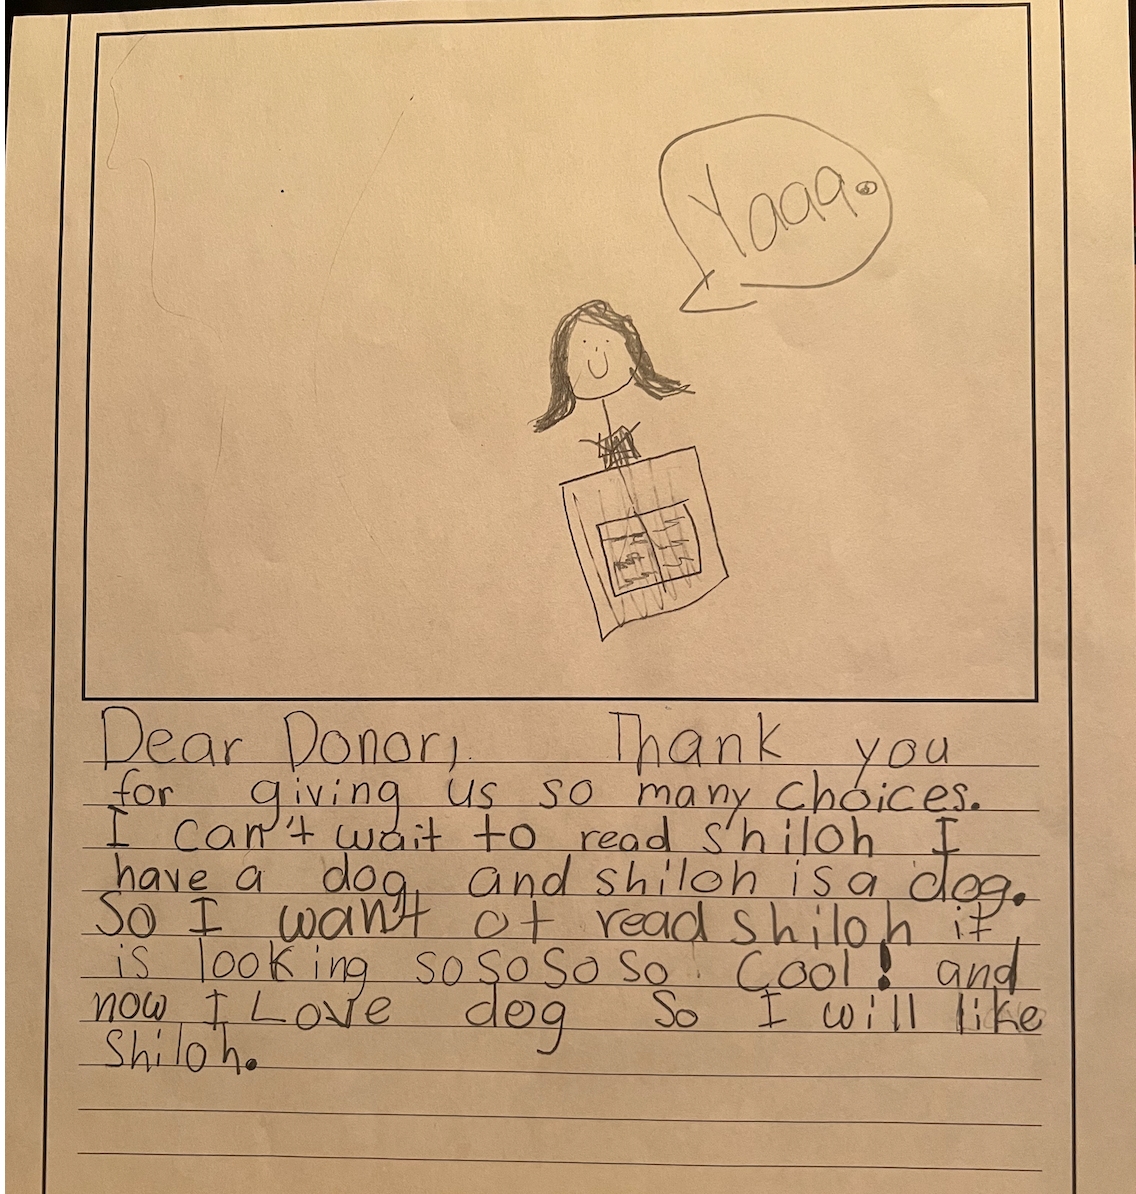 Yaaa.
Dear Donor, Thank you
for giving us so many choices.
I can't wait to read shiloh I
have a dog, and shiloh is a dog.
So I wan't ot read shiloh it
is looking so so so so Cool! and
now I Love dog So I will like
Shiloh.